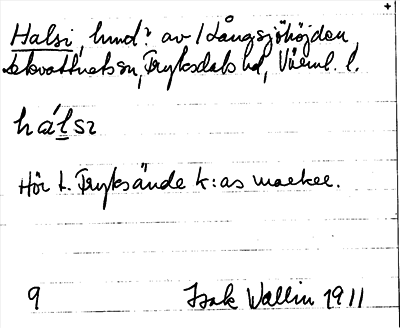 Halsi, hund? av / Långsjöhöjden
Lekvattnets sn, Fryksdals hd, Värml. l.
hál̲sı
Hör t. Fryksände k:as marker.
9 Isak Wallin 1911